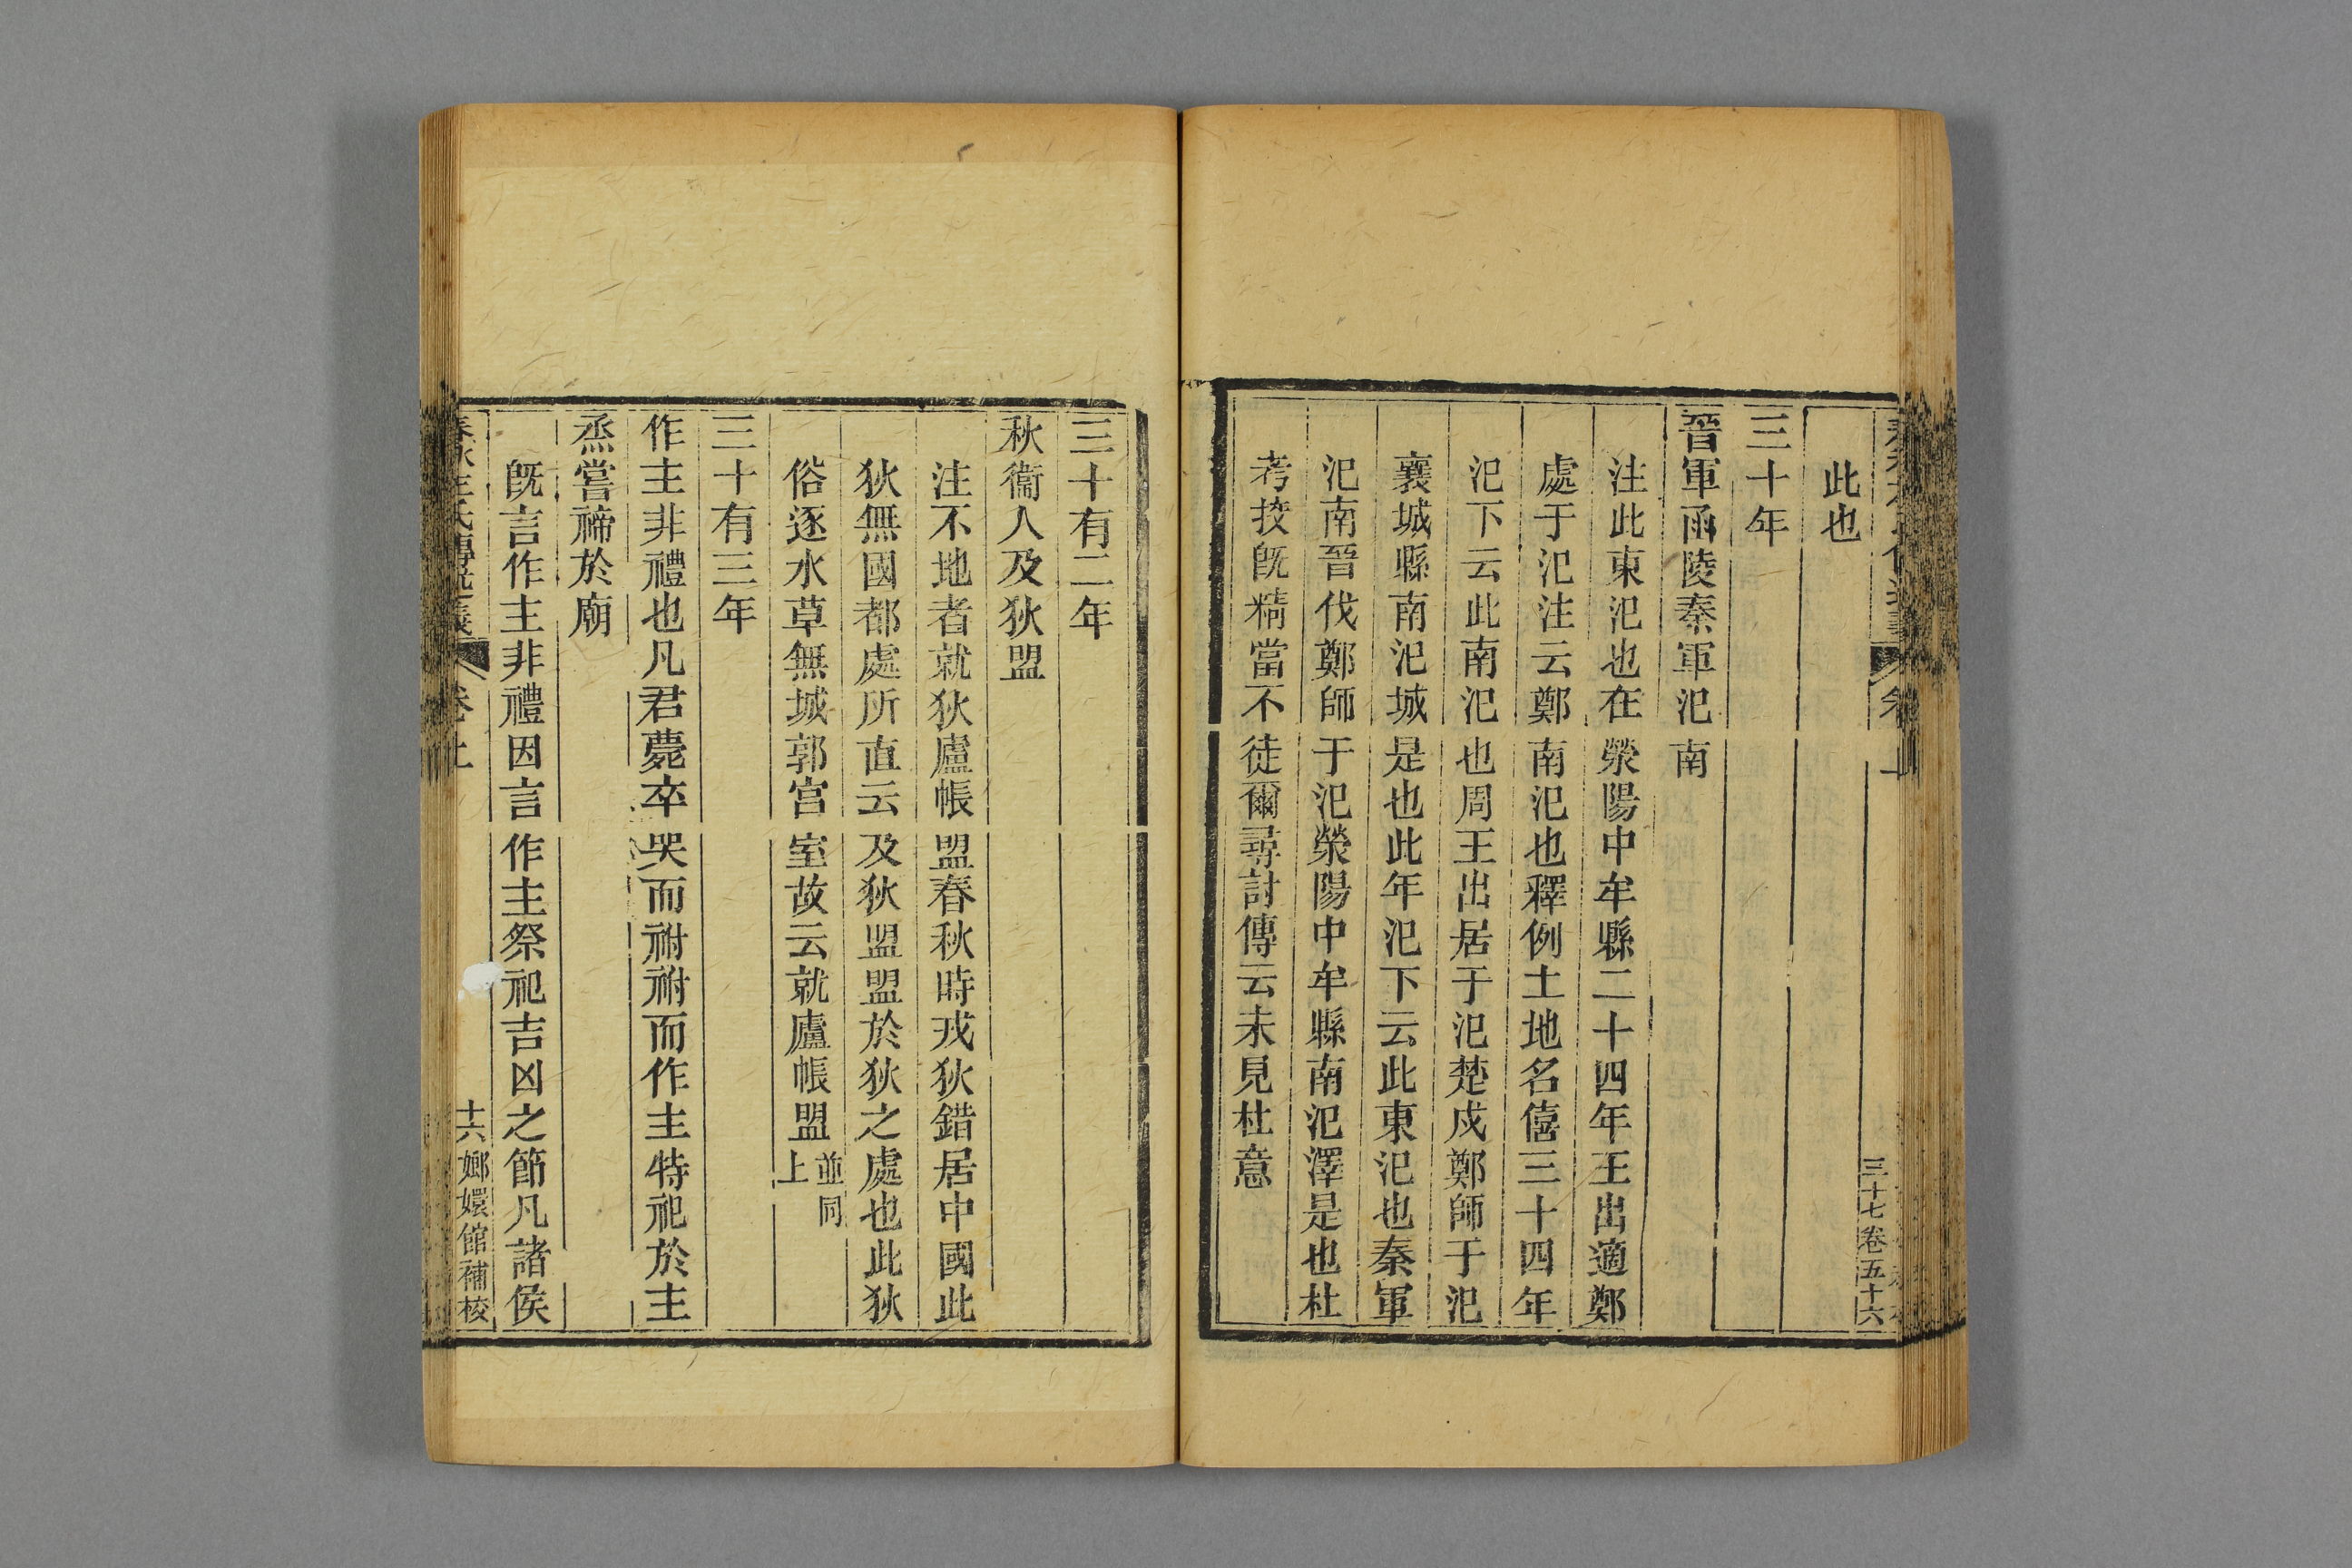 此也
三十年
晉軍函陵秦軍汜南
注此東汜也在滎陽中牟縣二十四年王出適鄭
處于汜注云鄭南汜也釋例土地名僖三十四年
汜下云此南汜也周王出居于汜楚戍鄭師于汜
襄城縣南汜城是也此年汜下云此東汜也秦軍
汜南晉伐鄭師于汜滎陽中牟縣南汜澤是也杜
考挍旣精當不徒爾尋討傳云未見杜意
三十七卷五十六
三十有二年
秋衞人及狄盟
注不地者就狄廬帳盟春秋時戎狄錯居中國此
狄無國都處所直云及狄盟盟於狄之處也此狄
俗逐水草無城郭宫室故云就廬帳盟並同上
三十有三年
作主非禮也凡君薨卒哭而祔祔而作主特祀於主
烝嘗禘於廟
旣言作主非禮因言作主祭祀吉凶之節凡諸侯
春秋左氏傳述義 卷上 十六 嫏嬛館補校